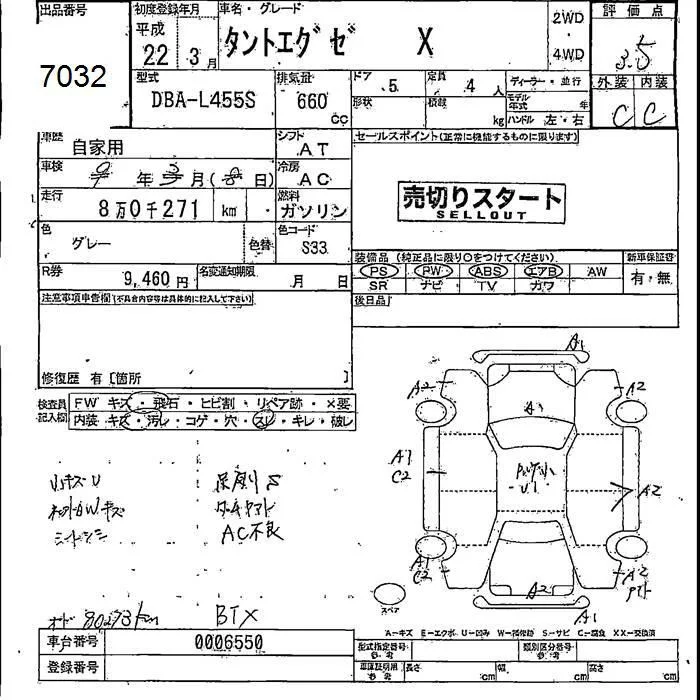 出品番号
7032
初度登録年月
平成
22年 3月
車名・グレード
タントエグゼ X
2WD
・
4WD
評価点
3.5
型式
DBA-L455S
排気量
660
cc
ドア
5
定員
4 人
ディーラー・並行
形状
積載
kg
モデル年式 年
ハンドル 左・右
外装 内装
C C
車歴
自家用
シフト
AT
車検
9 年 3 月 (8 日)
冷房
AC
走行
8万0千271 km
燃料
ガソリン
色
グレー
色替
色コード
S33
R券
9,460 円
名変通知期限
月 日
セールスポイント(正常に機能するものに限ります)
売切りスタート
SELLOUT
装備品 (純正品に限り○をつけてください)
新車保証書
PS PW ABS エアB AW
有・無
SR ナビ TV カワ
後日品
注意事項申告欄(不具合内容等は具体的に記入して下さい)
修復歴 有 [箇所 ]
検査員記入欄
FW キズ・飛石・ヒビ割・リペア跡・×要
内装 キズ・汚レ・コゲ・穴・スレ・キレ・破レ
リアキズU
下廻りS
シートシミ
AC不良
オド 80273km
BTX
A1
A2
A2
A1
A1
C2
U1
A2
A1
C2
A2
A2
A1
スペア
A=キズ E=エクボ U=凹み W=補修跡 S=サビ C=腐食 XX=交換済
車台番号
0006550
登録番号
型式指定番号
参考
類別区分番号
参考
車庫証明用
参考
長さ cm
幅 cm
高さ cm